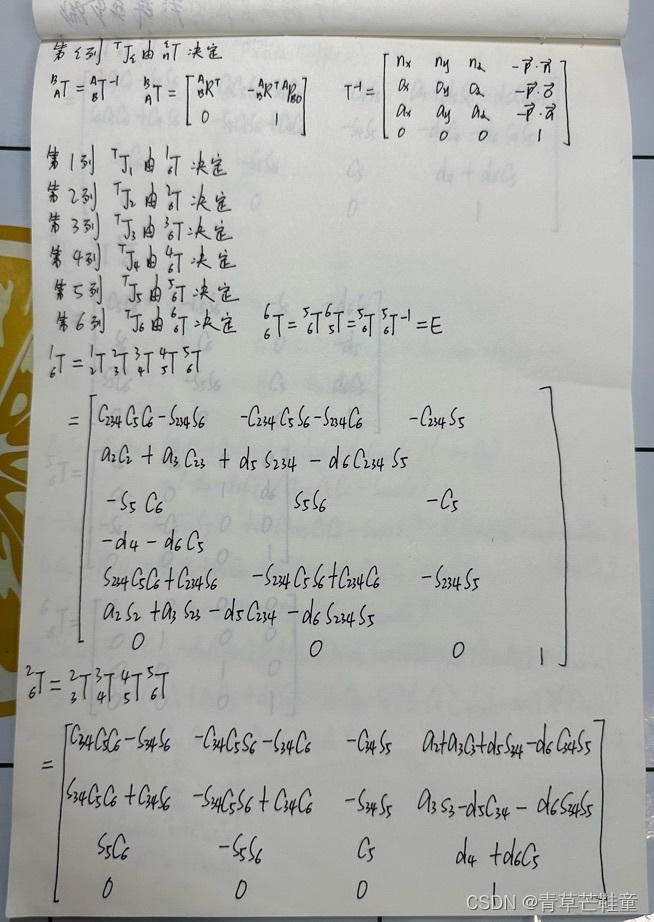 第i列 ᵀJᵢ由ⁱₙT 决定
ᴮ_A T = ᴬ_B T⁻¹  ᴮ_A T = [ ᴬ_B Rᵀ  -ᴬ_B Rᵀ ᴬP_BO ; 0  1 ]  T⁻¹ = [ nx  ny  nz  -p⃗·n⃗
ox  oy  oz  -p⃗·o⃗
ax  ay  az  -p⃗·a⃗
0  0  0  1 ]
第1列 ᵀJ₁由¹₆T决定
第2列 ᵀJ₂由²₆T决定
第3列 ᵀJ₃由³₆T决定
第4列 ᵀJ₄由⁴₆T决定
第5列 ᵀJ₅由⁵₆T决定
第6列 ᵀJ₆由⁶₆T决定  ⁶₆T = ⁵₆T⁶₅T = ⁵₆T⁵₆T⁻¹ = E
¹₆T = ¹₂T²₃T³₄T⁴₅T⁵₆T
= [ C234C5C6 - S234S6  -C234C5S6 - S234C6  -C234S5
a2C2 + a3C23 + d5S234 - d6C234S5
-S5C6  S5S6  -C5
-d4 - d6C5
S234C5C6 + C234S6  -S234C5S6 + C234C6  -S234S5
a2S2 + a3S23 - d5C234 - d6S234S5
0  0  0  1 ]
²₆T = ²₃T³₄T⁴₅T⁵₆T
= [ C34C5C6 - S34S6  -C34C5S6 - S34C6  -C34S5  a2+a3C3+d5S34-d6C34S5
S34C5C6 + C34S6  -S34C5S6 + C34C6  -S34S5  a3S3-d5C34 - d6S34S5
S5C6  -S5S6  C5  d4 + d6C5
0  0  0  1 ]
CSDN @青草芒鞋童